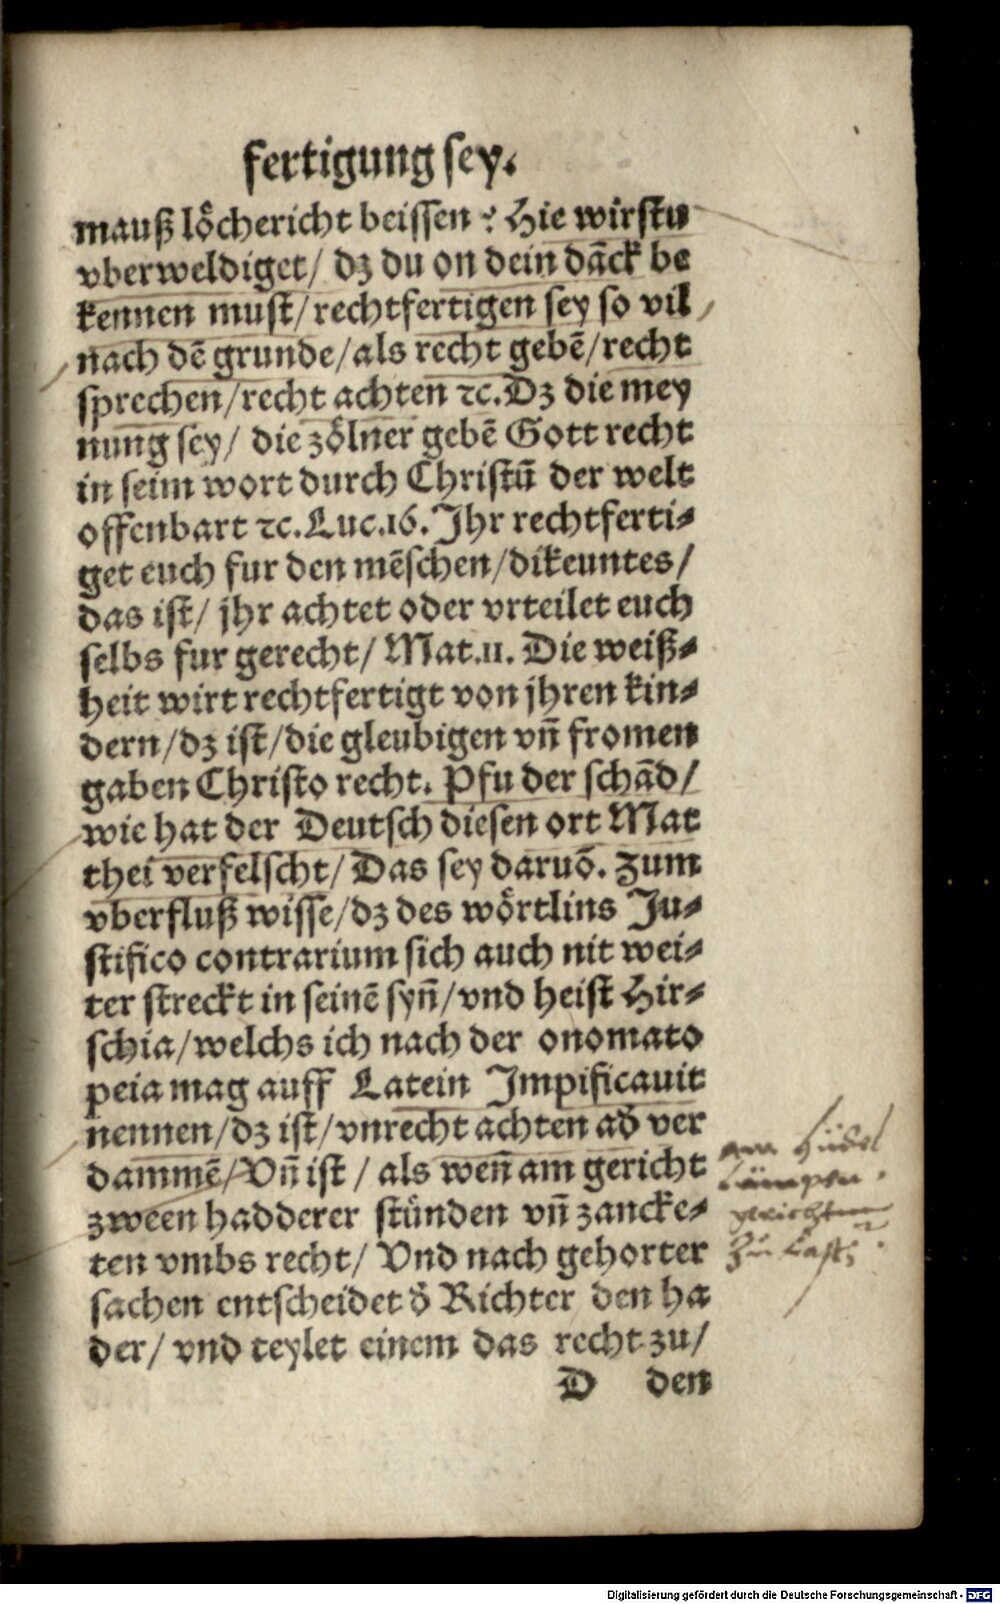 fertigung sey.
mauß löchericht beissen ? Hie wirstu
vberweldiget/ dz du on dein dãck be
kennen must/ rechtfertigen sey so vil
nach dẽ grunde/als recht gebẽ/recht
sprechen/recht achten ⁊c. Dz die mey
nung sey/ die zölner gebẽ Gott recht
in seim wort durch Christũ der welt
offenbart ⁊c. Luc.16. Jhr rechtferti⸗
get euch fur den mẽschen/dikeuntes/
das ist/ jhr achtet oder vrteilet euch
selbs fur gerecht/ Mat.11. Die weiß⸗
heit wirt rechtfertigt von jhren kin⸗
dern/dz ist/die gleubigen vñ fromen
gaben Christo recht. Pfu der schãd/
wie hat der Deutsch diesen ort Mat
thei verfelscht/ Das sey daruõ. Zum
vberfluß wisse/dz des wörtlins Ju⸗
stifico contrarium sich auch nit wei⸗
ter streckt in seinẽ syñ/vnd heist Hir⸗
schia/welchs ich nach der onomato
peia mag auff Latein Jmpificauit
nennen/dz ist/vnrecht achten ad̕ ver
dammẽ/Vñ ist / als weñ am gericht
zween hadderer stünden vñ zancke⸗
ten vmbs recht/ Vnd nach gehorter
sachen entscheidet d̕ Richter den ha
der/ vnd teylet einem das recht zu/
D den
am hüdel
Lümpen
zu
Digitalisierung gefördert durch die Deutsche Forschungsgemeinschaft - DFG